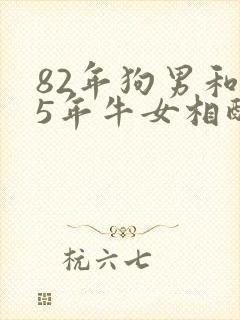 82年狗男和
5年牛女相配
杭六七